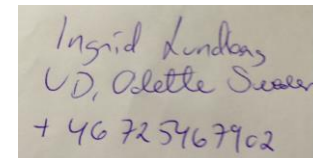 Ingrid Lundberg
UD, Odette
+ 46 725467902